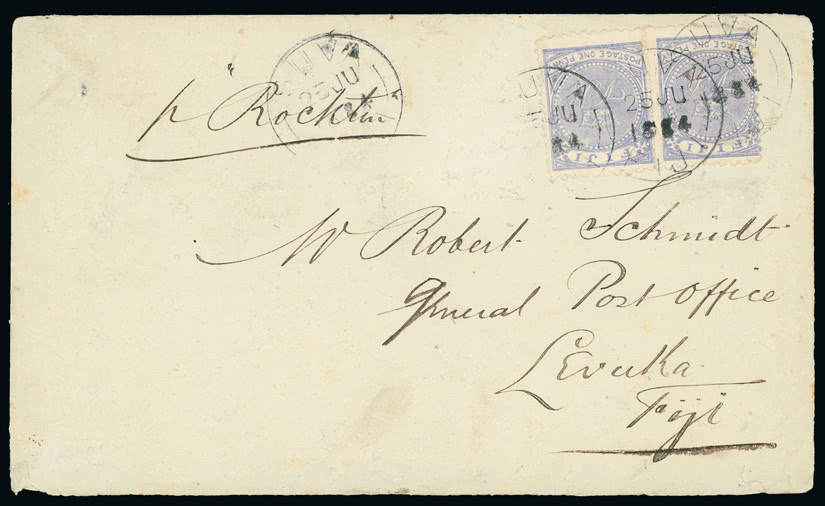 SUVA
25 JU
p "Rockton
SUVA
JU
84
SUVA
25 JU
1884
SUVA
25 JU
1884
POSTAGE ONE PENNY
FIJI
POSTAGE ONE PENNY
FIJI
Mr Robert Schmidt
General Post Office
Levuka
Fiji